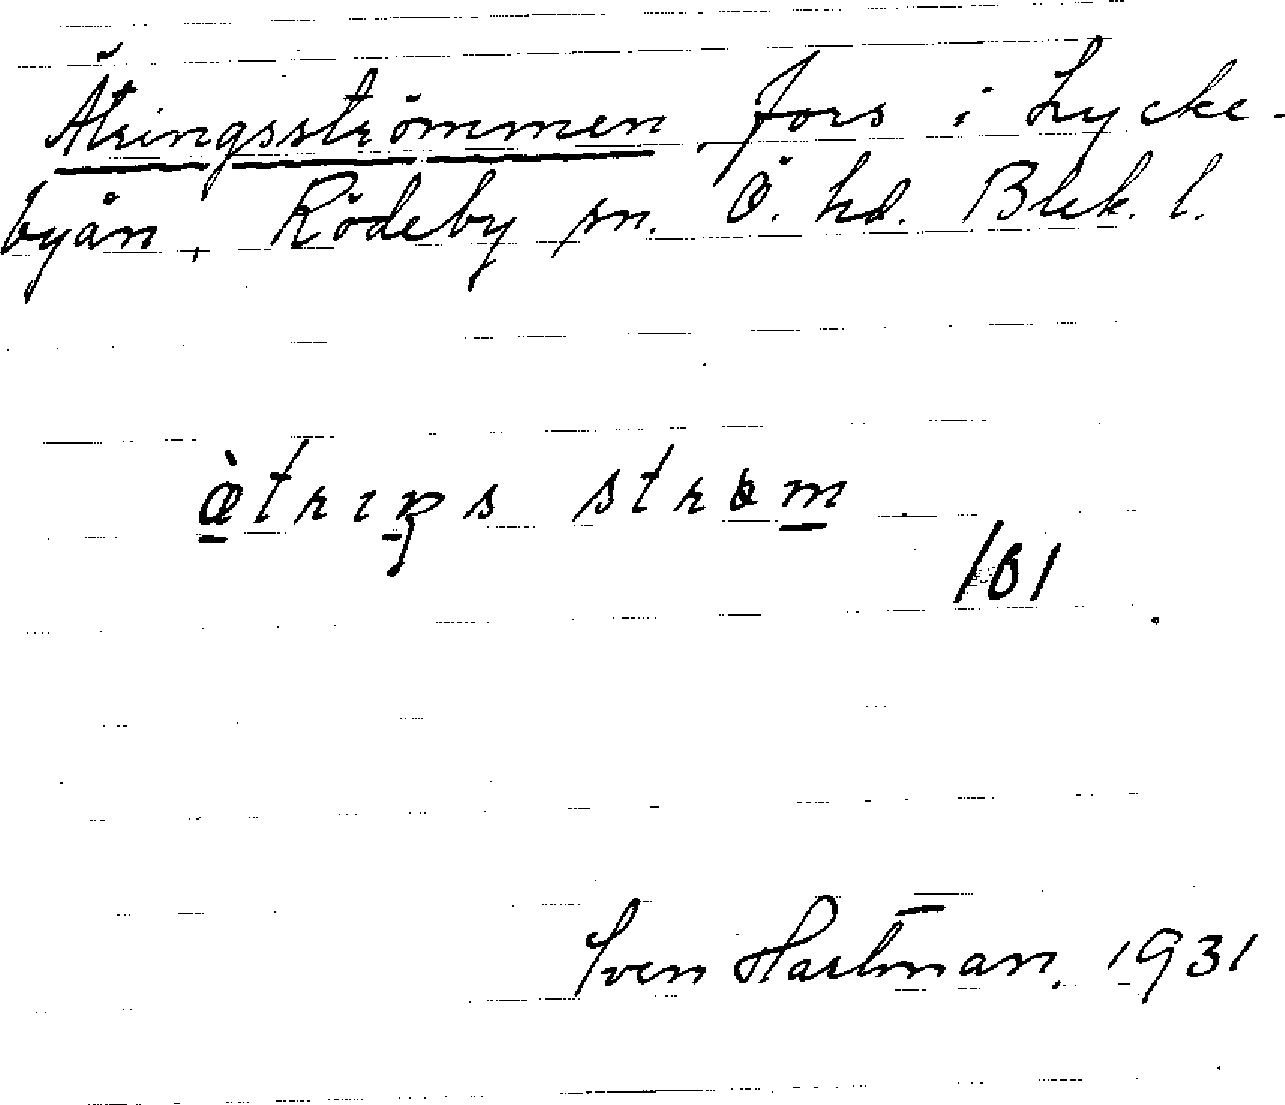 Ätringsströmmen fors i Lycke-
byån, Rödeby sn. Ö. hd. Blek. l.
æ̀trıŋs strøm
101
Sven Hartman, 1931